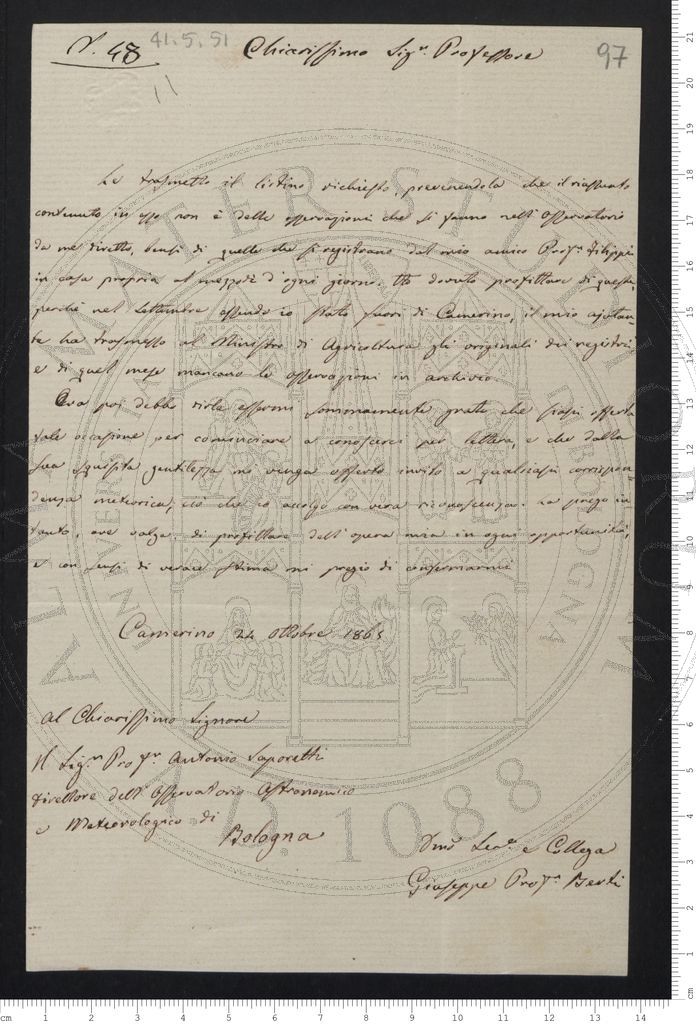 N. 48
41.5.51
Chiarissimo Sigr. Professore
97
Le trasmetto il listino richiesto, prevenendola che il riassunto
contenuto in esso non è delle osservazioni che si fanno nell'Osservatorio
da me diretto, bensì di quelle che si registrano dal mio amico Profr. Filippi
in casa propria al mezzodì d'ogni giorno. Ho dovuto profittare di queste,
perchè nel Settembre essendo io stato fuori di Camerino, il mio ajutan-
te ha trasmesso al Ministro di Agricoltura gli originali dei registri
e di quel mese mancano le osservazioni in archivio.
Ora poi debbo esserne sommamente grato che siasi offerta
tale occasione per cominciare a conoscerci per lettera, e che dalla
sua squisita gentilezza mi venga offerto invito a qualsiasi corrispon-
denza meteorica, ciò che io accolgo con vera riconoscenza. La prego in
tanto, ove valga, di profittare dell'opera mia in ogni opportunità,
e con sensi di verace stima mi pregio di confermarmi
Camerino 24 Ottobre 1865
Al Chiarissimo Signore
Il Sigr. Profr. Antonio Saporetti
Direttore dell'Osservatorio Astronomico
e Meteorologico di
Bologna
Dmo Servr. e Collega
Giuseppe Profr. Berti
ALMA MATER STUDIORUM
A.D. 1088